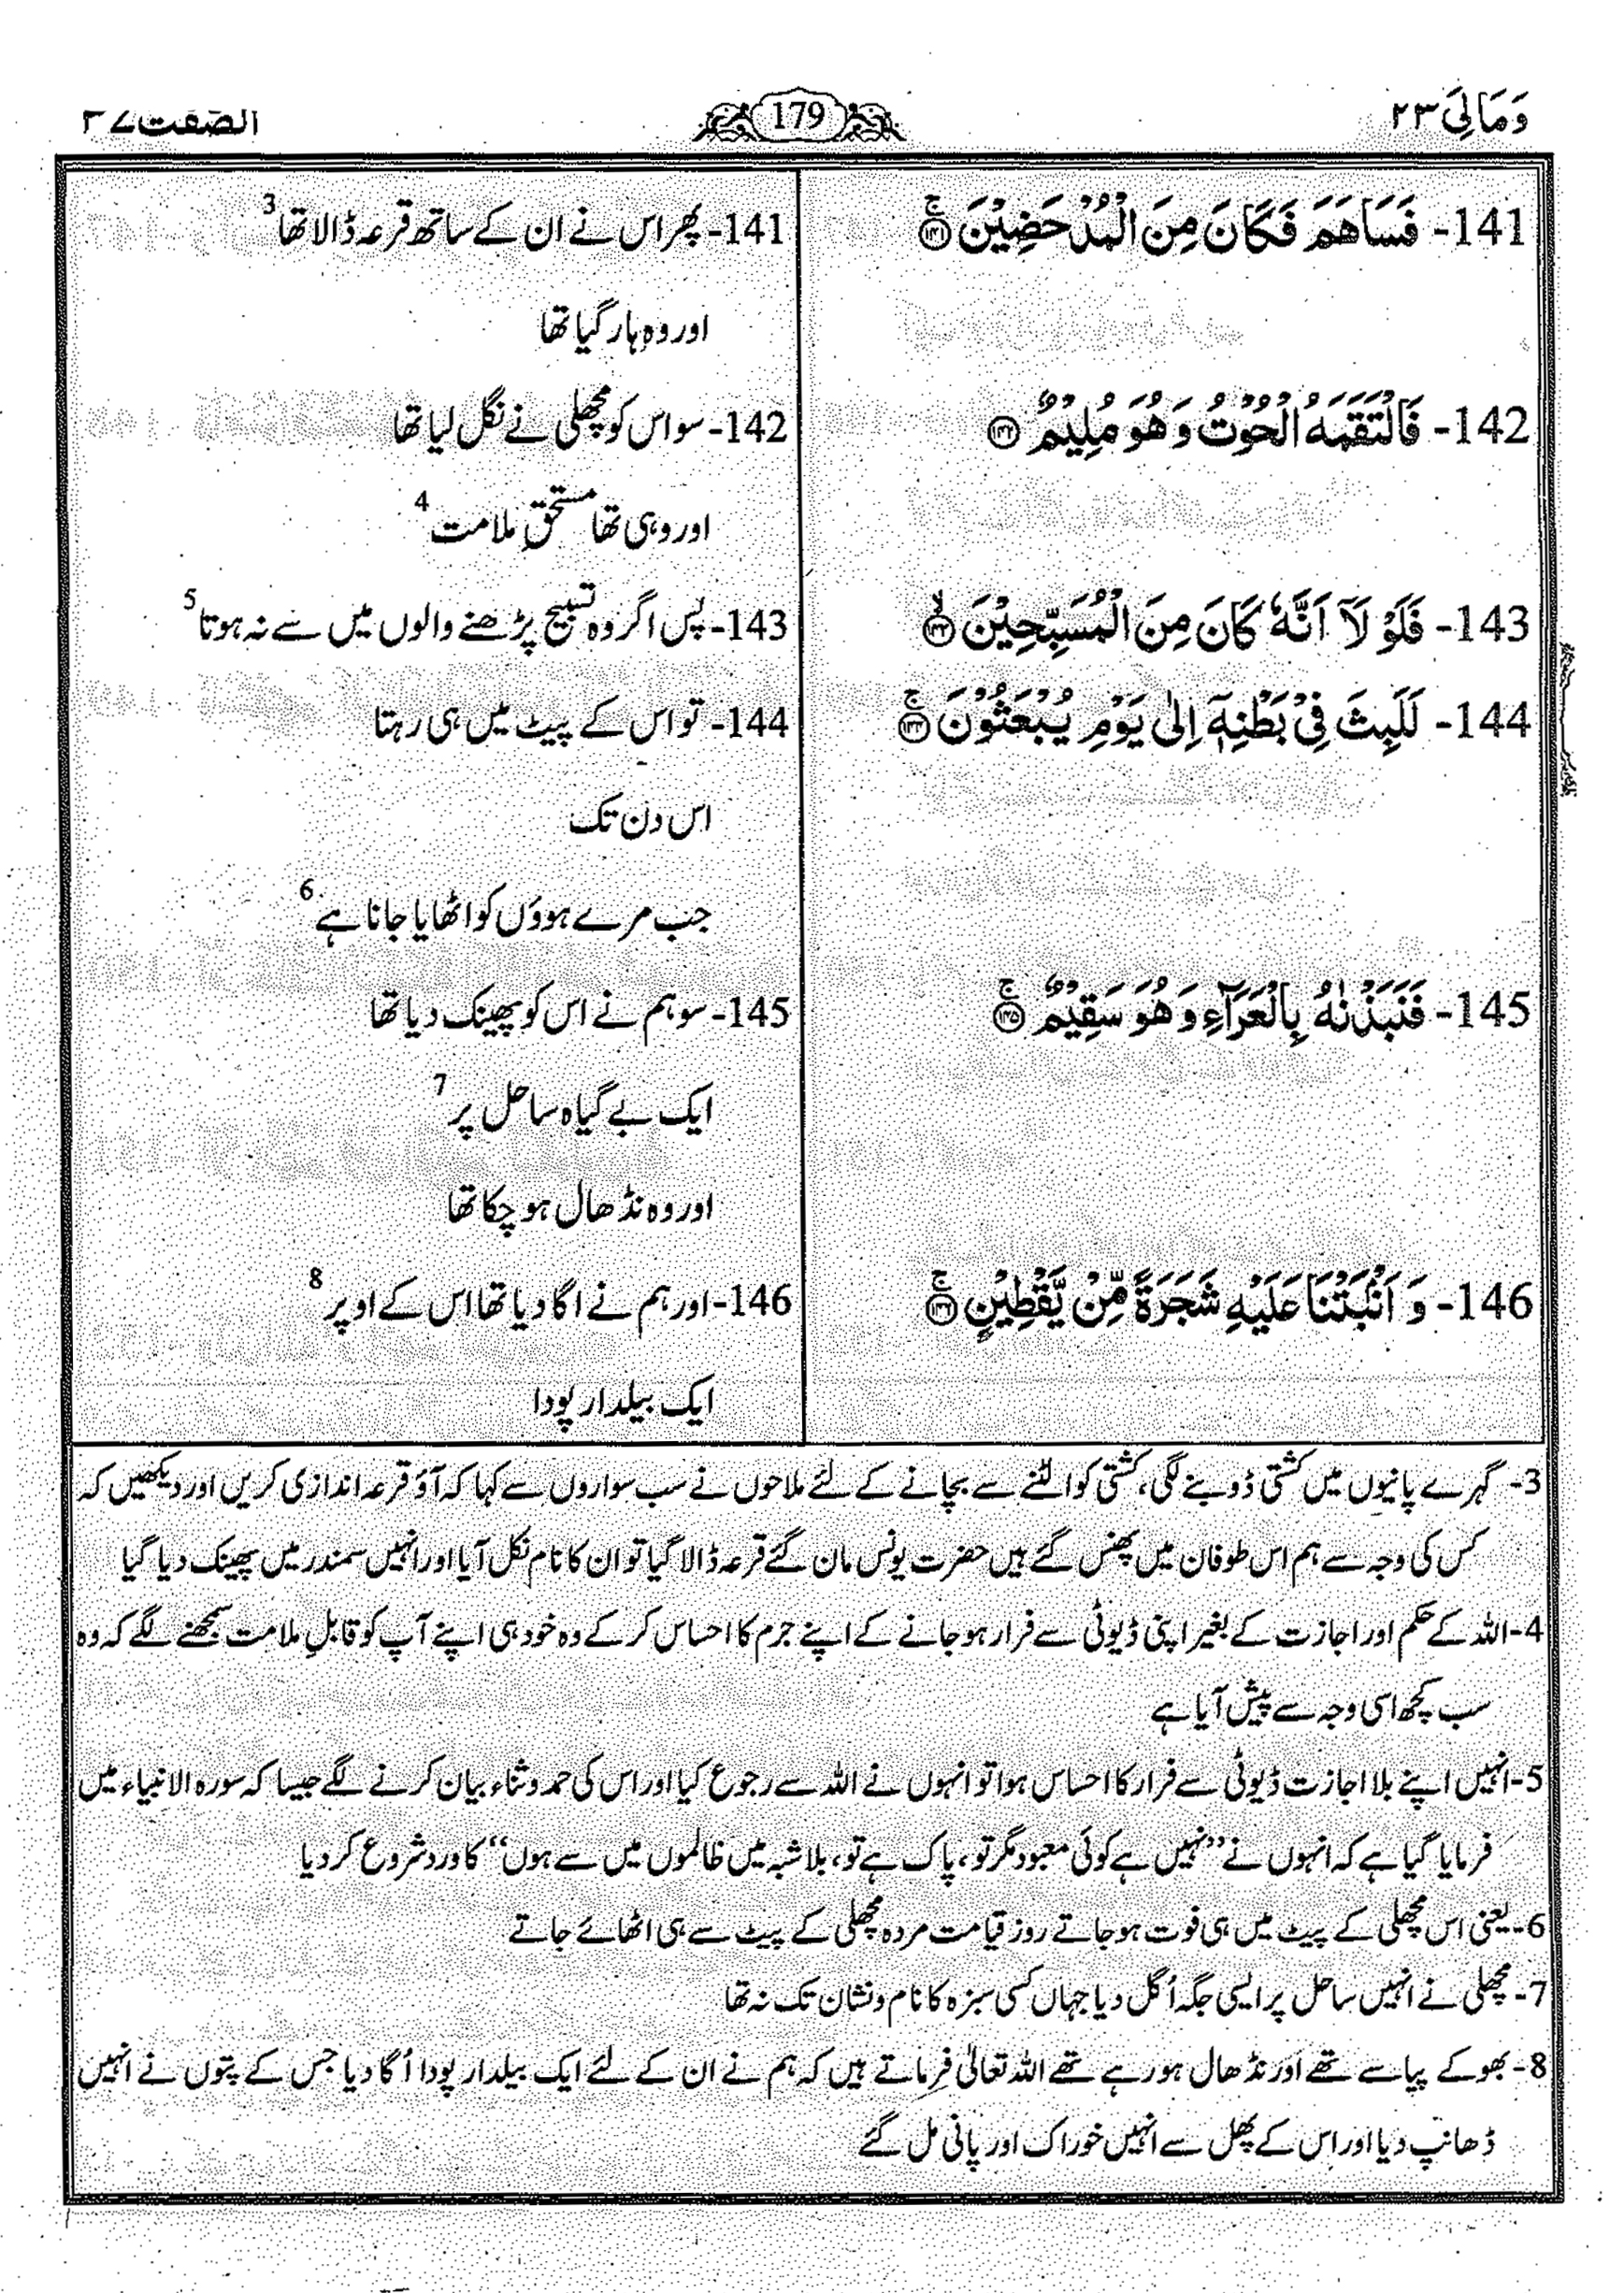 وَمَالِیَ ۲۳
179
الصّٰفّٰت ۳۷
141- فَسَاهَمَ فَكَانَ مِنَ الْمُدْحَضِيْنَ ۚ ۝۱۴۱
141- پھر اس نے ان کے ساتھ قرعہ ڈالا تھا 3
اور وہ ہار گیا تھا
142- فَالْتَقَمَهُ الْحُوْتُ وَ هُوَ مُلِيْمٌ ۝۱۴۲
142- سو اس کو مچھلی نے نگل لیا تھا
اور وہی تھا مستحقِ ملامت 4
143- فَلَوْ لَاۤ اَنَّهٗ كَانَ مِنَ الْمُسَبِّحِيْنَ ۙ ۝۱۴۳
143- پس اگر وہ تسبیح پڑھنے والوں میں سے نہ ہوتا 5
144- لَلَبِثَ فِيْ بَطْنِهٖۤ اِلٰى يَوْمِ يُبْعَثُوْنَ ۚ ۝۱۴۴
144- تو اس کے پیٹ میں ہی رہتا
اس دن تک
جب مرے ہوؤں کو اٹھایا جانا ہے 6
145- فَنَبَذْنٰهُ بِالْعَرَآءِ وَ هُوَ سَقِيْمٌ ۚ ۝۱۴۵
145- سو ہم نے اس کو پھینک دیا تھا
ایک بے گیاہ ساحل پر 7
اور وہ نڈھال ہو چکا تھا
146- وَ اَنْۢبَتْنَا عَلَيْهِ شَجَرَةً مِّنْ يَّقْطِيْنٍ ۚ ۝۱۴۶
146- اور ہم نے اگا دیا تھا اس کے اوپر 8
ایک بیلدار پودا
3- گہرے پانیوں میں کشتی ڈوبنے لگی، کشتی کو الٹنے سے بچانے کے لئے ملاحوں نے سب سواروں سے کہا کہ آؤ قرعہ اندازی کریں اور دیکھیں کہ
کس کی وجہ سے ہم اس طوفان میں پھنس گئے ہیں حضرت یونس مان گئے قرعہ ڈالا گیا تو ان کا نام نکل آیا اور انہیں سمندر میں پھینک دیا گیا
4- اللہ کے حکم اور اجازت کے بغیر اپنی ڈیوٹی سے فرار ہو جانے کے اپنے جرم کا احساس کر کے وہ خود ہی اپنے آپ کو قابلِ ملامت سمجھنے لگے کہ وہ
سب کچھ اسی وجہ سے پیش آیا ہے
5- انہیں اپنے بلا اجازت ڈیوٹی سے فرار کا احساس ہوا تو انہوں نے اللہ سے رجوع کیا اور اس کی حمد و ثناء بیان کرنے لگے جیسا کہ سورہ الانبیاء میں
فرمایا گیا ہے کہ انہوں نے ”نہیں ہے کوئی معبود مگر تو، پاک ہے تو، بلا شبہ میں ظالموں میں سے ہوں“ کا ورد شروع کر دیا
6- یعنی اس مچھلی کے پیٹ میں ہی فوت ہو جاتے روز قیامت مردہ مچھلی کے پیٹ سے ہی اٹھائے جاتے
7- مچھلی نے انہیں ساحل پر ایسی جگہ اُگل دیا جہاں کسی سبزہ کا نام و نشان تک نہ تھا
8- بھوکے پیاسے تھے اور نڈھال ہو رہے تھے اللہ تعالیٰ فرماتے ہیں کہ ہم نے ان کے لئے ایک بیلدار پودا اُگا دیا جس کے پتوں نے انہیں
ڈھانپ دیا اور اس کے پھل سے انہیں خوراک اور پانی مل گئے